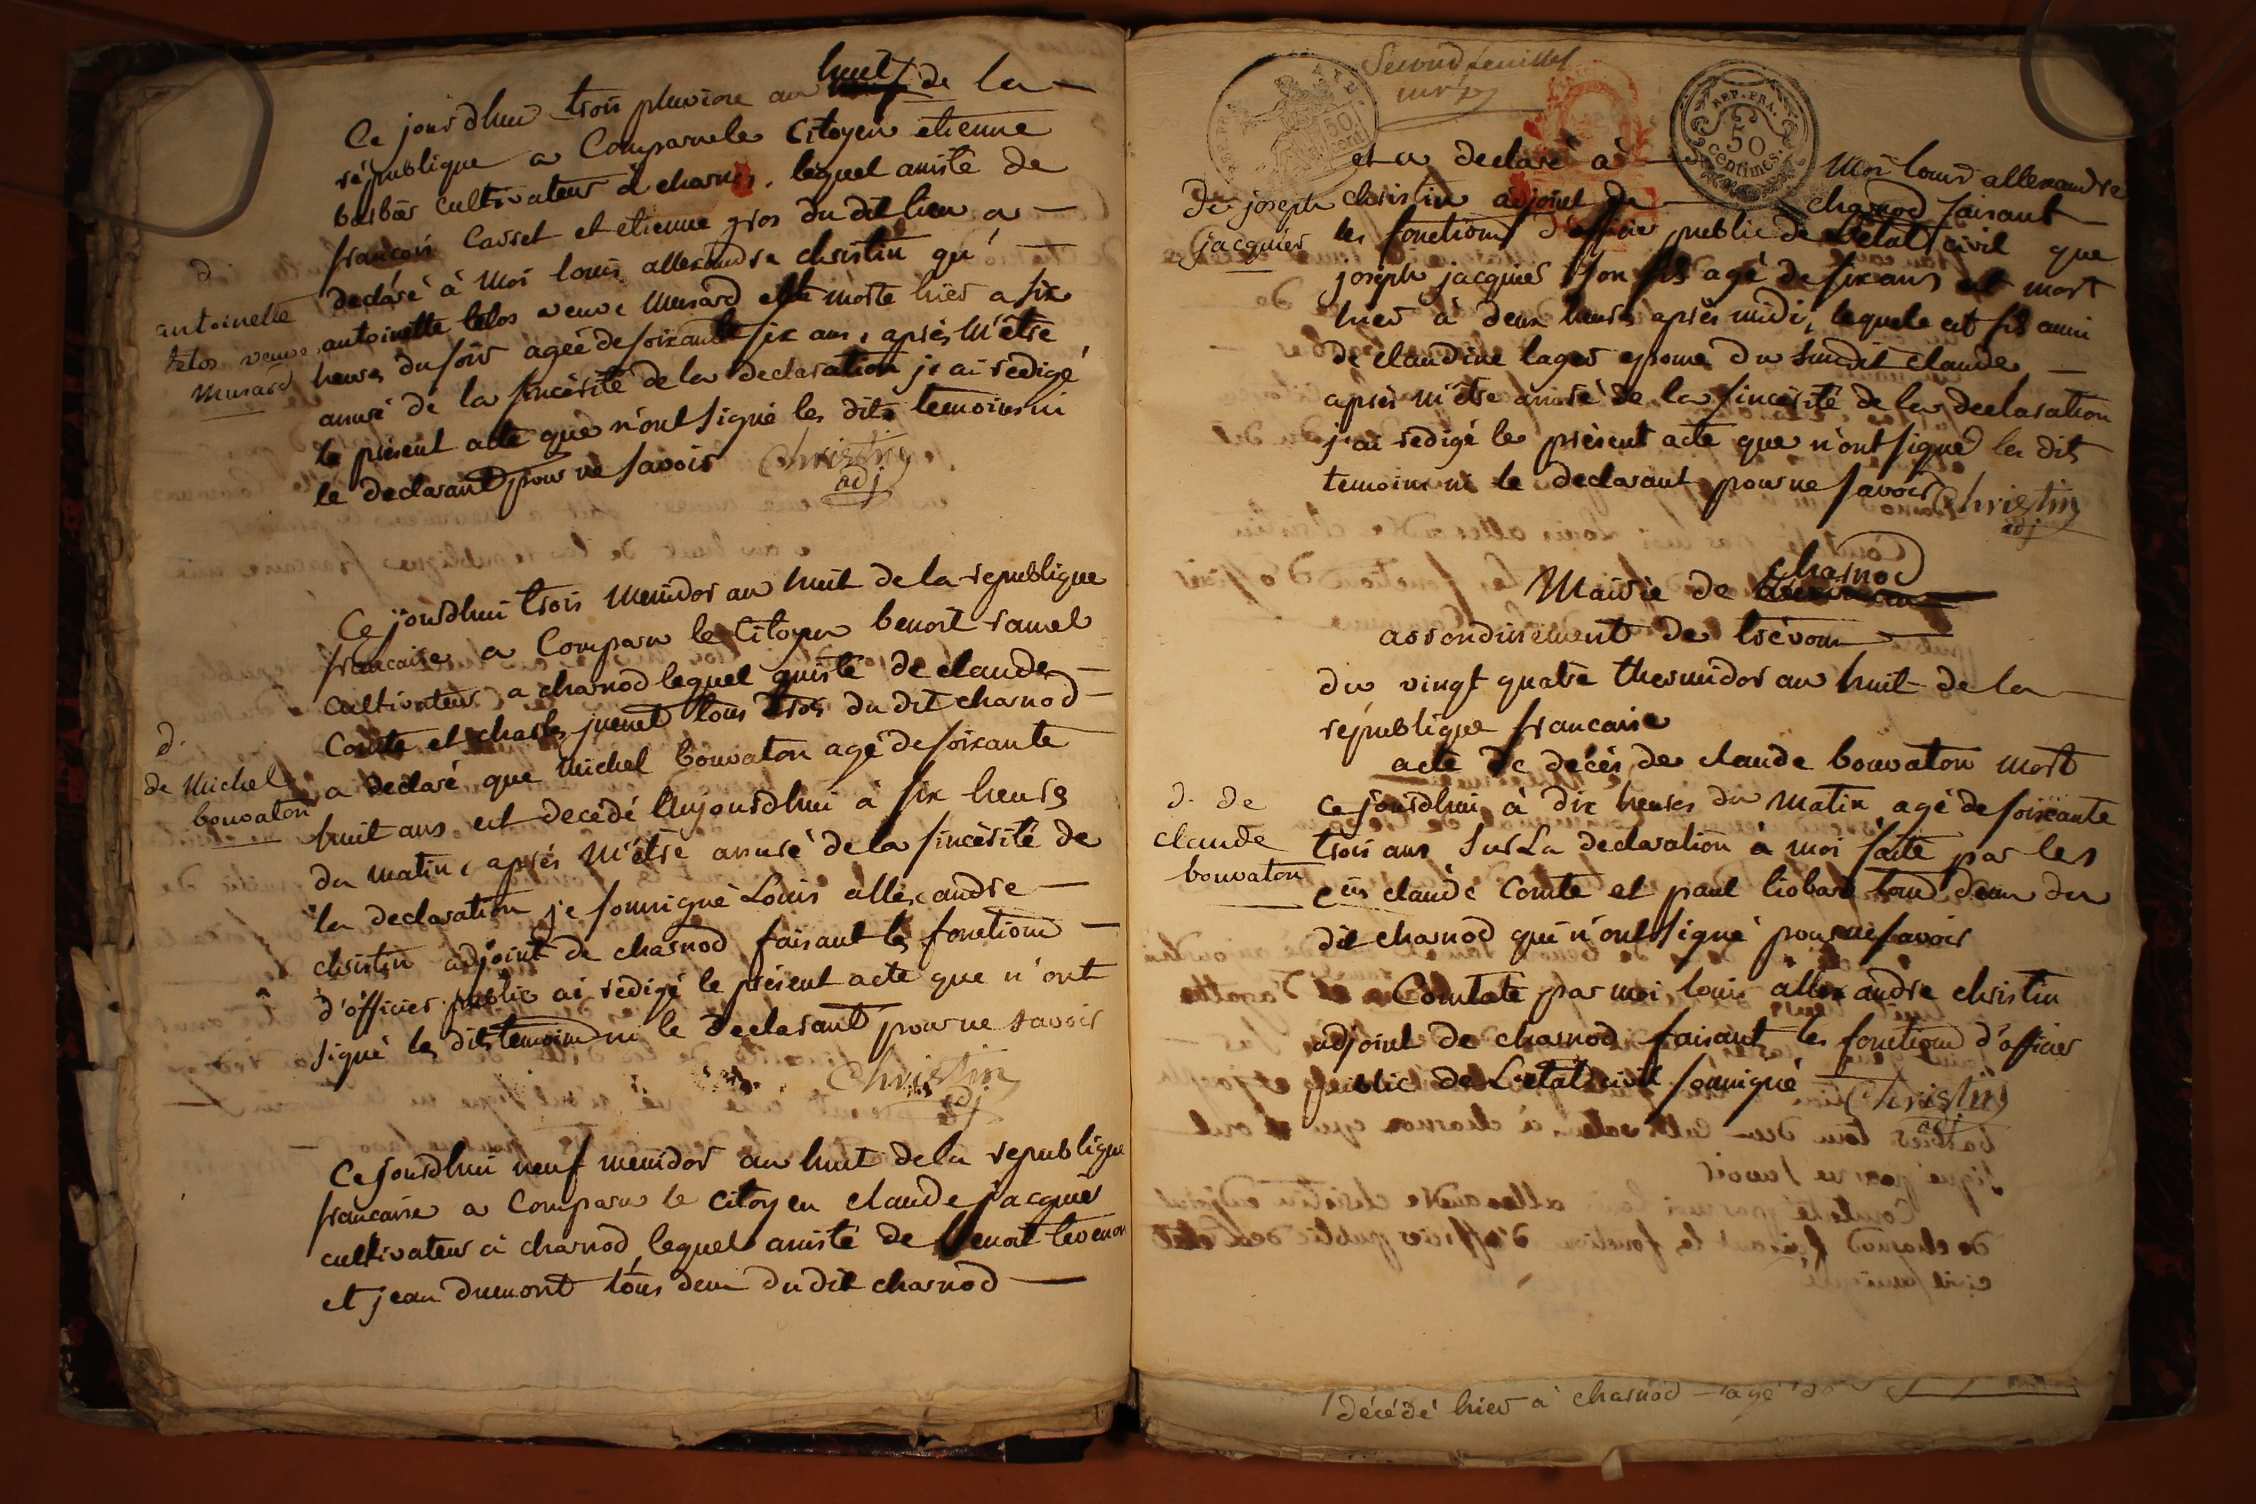 Ce jourdhui trois pluviose an huit de la
republique a Comparu le Citoyen etienne
barbier cultivateur à charnod, lequel assisté de
francois Carret et etienne gros du dit lieu a
declaré à Moi louis allexandre christin qu'
antoinette telos veuve Musard est morte hier a six
heures du soir ageé de soixante six ans, après M'être
assuré de la sincèrité de la declaration je ai redigé
le présent acte que n'ont signé les dits temoins ni
le declarant pour ne savoir Christin
adj
d
antoinette
telos veuve
Musard
Ce jourdhui trois Messidor an huit de la republique
francaise a Comparu le Citoyen benoit ramel
cultivateur a charnod lequel assisté de claude
Comte et charles juenet tous trois du dit charnod
a declaré que Michel bouvaton agé de soixante
huit ans est decédé Aujourdhui à six heures
du matin, après M'être assuré de la sincèrité de
la declaration je soussigné Louis allexandre
christin adjoint de charnod faisant les fonctions
d'officier public ai redigé le présent acte que n'ont
signé les dits temoins ni le declarant pour ne savoir
Christin
adj
d.
de Michel
bouvaton
Ce jourdhui neuf messidor an huit de la republique
francaise a Comparu le citoyen claude jacquier
cultivateur à charnod lequel assisté de benoit tevenon
et jean dumont tous deux du dit charnod
Second feuillet
REP. FRA.
50
centimes.
et a declaré à Moi louis allexandre
christin adjoint de charnod faisant
les fonctions d'officier public de l'état civil que
joseph jacquier son fils agé de six ans est mort
hier à deux heures après midi, lequel est fils aussi
de claudine lager epouse du susdit claude
après m'être assuré de la sincèrité de la declaration
j'ai redigé le présent acte que n'ont signé les dits
temoins ni le declarant pour ne savoir Christin
adj
De joseph
jacquier
Mairie de charnod
arrondissement de trévoux
du vingt quatre thermidor an huit de la
republique francaise
acte de décès de claude bouvaton mort
ce jourdhui à dix heures du Matin agé de soixante
trois ans Sur La declaration à moi faite par les
cens claude Comte et paul liobard tous deux du
dit charnod qui n'ont signé pour ne savoir
Constaté par moi louis allexandre christin
adjoint de charnod faisant les fonctions d'officier
public de L'etat civil soussigné Christin
adj
d. de
claude
bouvaton
décédé hier à charnod agé